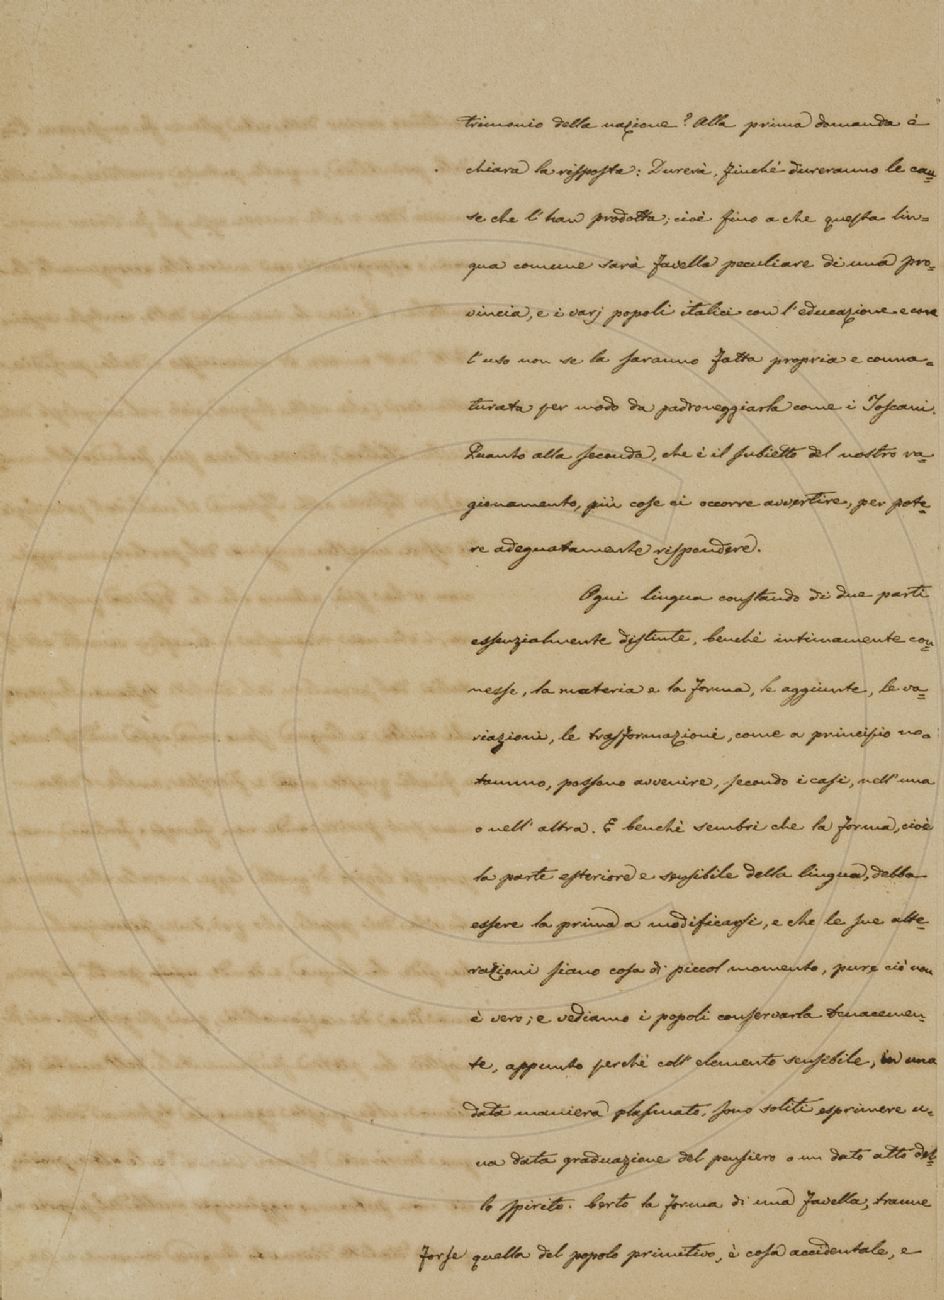 trimonio della nazione? Alla prima domanda è
chiara la risposta: Durerà, finchè dureranno le cau=
se che l'han prodotta; cioè fino a che questa lin=
gua comune sarà favella peculiare di una pro=
vincia, e i varj popoli italici con l'educazione e con
l'uso non se la saranno fatta propria e conna=
turata per modo da padroneggiarla come i Toscani.
Quanto alla seconda, che è il subietto del nostro ra=
gionamento, più cose ci occorre avvertire, per pote=
re adeguatamente rispondere.
Ogni lingua constando di due parti
essenzialmente distinte, benchè intimamente con=
nesse, la materia e la forma, le aggiunte, le va=
riazioni, le trasformazioni, come a principio no=
tammo, possono avvenire, secondo i casi, nell'una
o nell'altra. E benchè sembri che la forma, cioè
la parte esteriore e sensibile della lingua, debba
essere la prima a modificarsi, e che le sue alte=
razioni siano cosa di piccol momento, pure ciò non
è vero; e vediamo i popoli conservarla tenacemen=
te, appunto perchè coll'elemento sensibile, in una
data maniera plasmato, sono soliti esprimere u=
na data graduazione del pensiero o un dato atto del=
lo spirito. Certo la forma di una favella, tranne
forse quella del popolo primitivo, è cosa accidentale, e